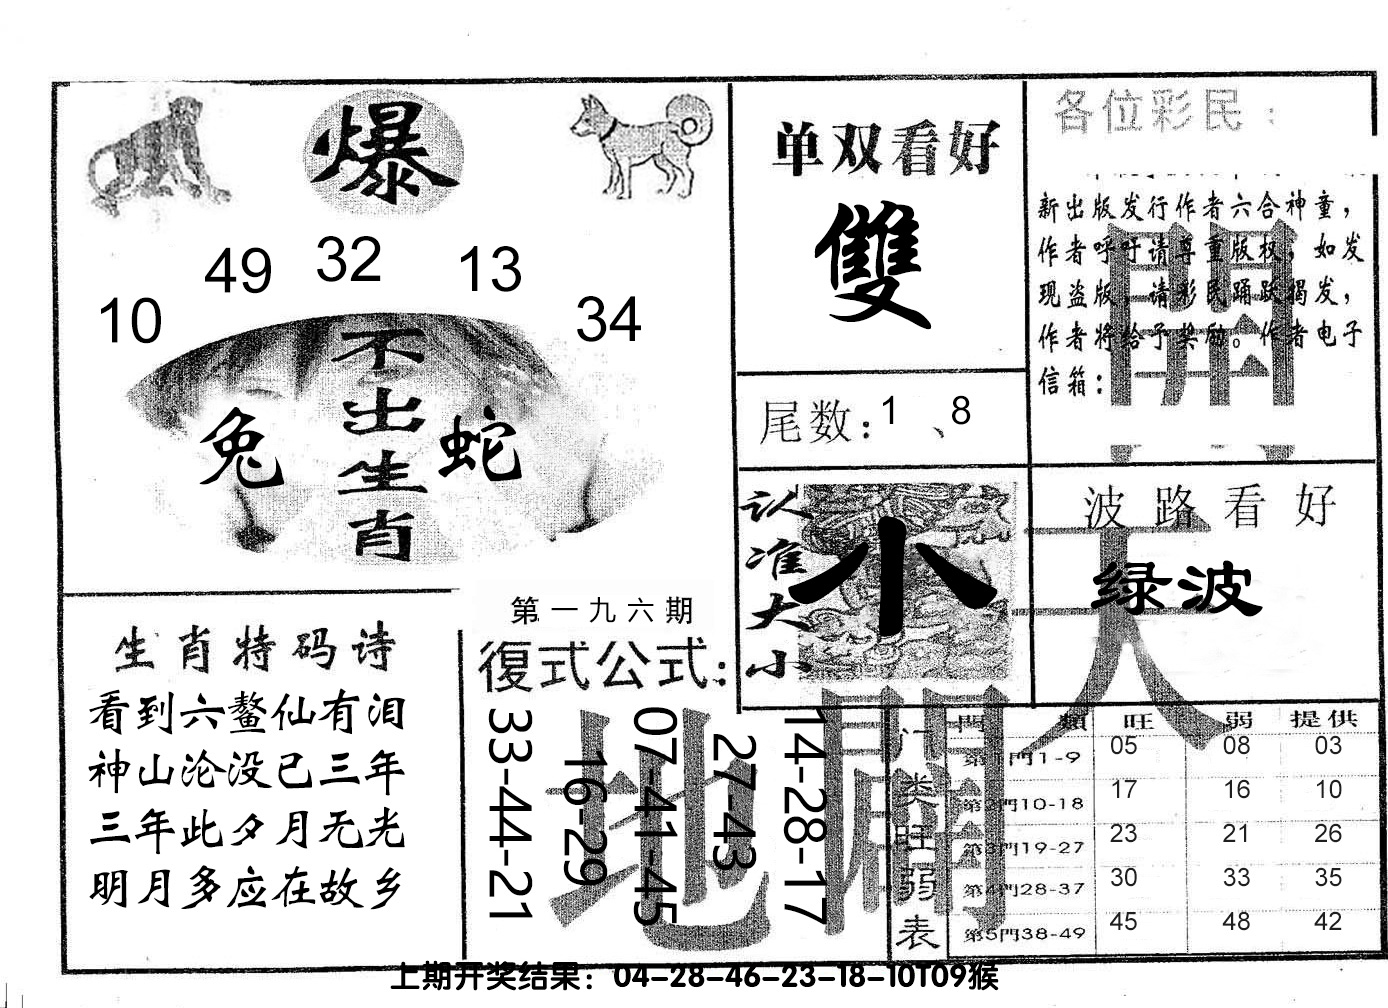 爆
49 32 13
10 34
不出生肖
兔 蛇
单双看好
雙
尾数：1、8
各位彩民：
新出版发行作者六合神童，
作者呼吁请尊重版权，如发
现盗版，请彩民踊跃揭发，
作者将给予奖励。作者电子
信箱：
認准大小
小
波路看好
绿波
天
開
地
闢
生肖特码诗
看到六鳌仙有泪
神山沦没已三年
三年此夕月无光
明月多应在故乡
第一九六期
復式公式：
33-44-21
16-29
07-41-45
27-43
14-28-17
门类旺弱表
門類 旺 弱 提供
第1門1-9 05 08 03
第2門10-18 17 16 10
第3門19-27 23 21 26
第4門28-37 30 33 35
第5門38-49 45 48 42
上期开奖结果：04-28-46-23-18-10T09猴